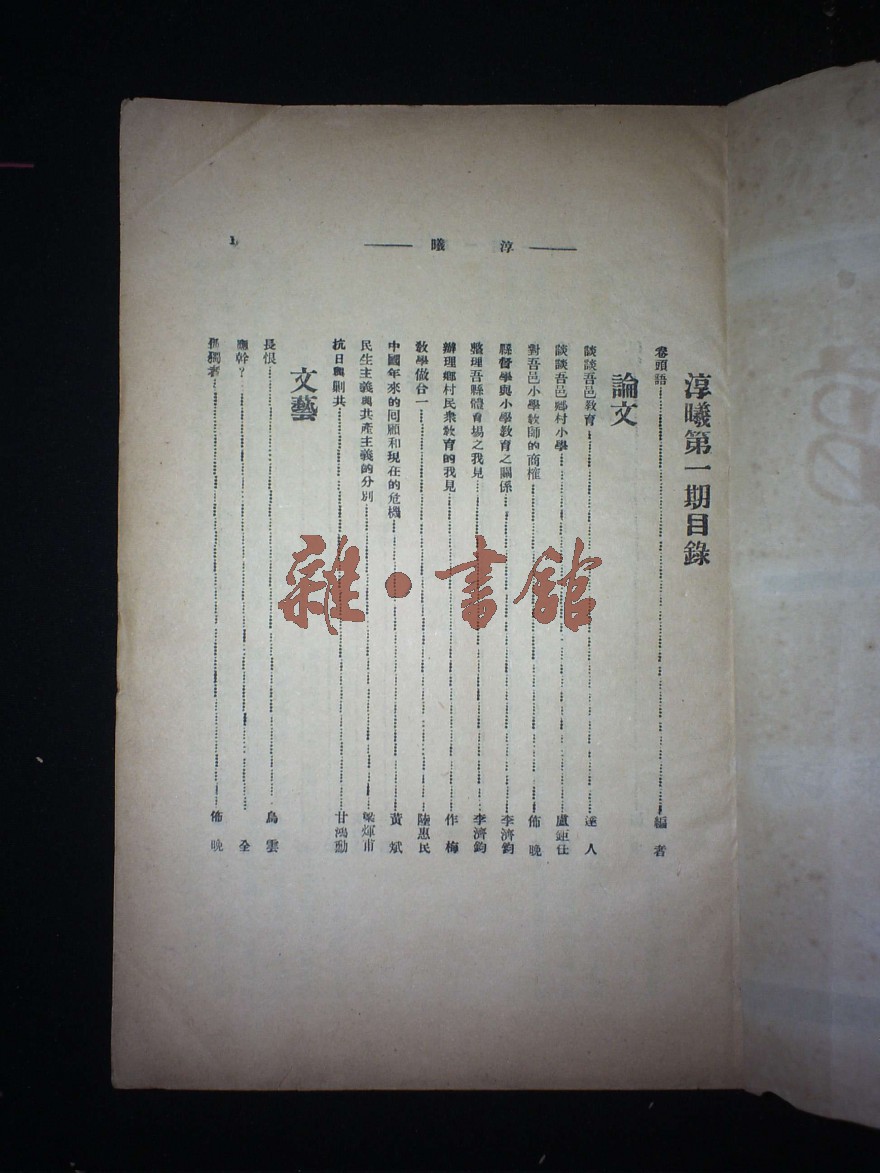 淳曦
1
淳曦第一期目錄
卷頭語 編者
論文
談談吾邑教育 遂人
談談吾邑鄉村小學 盧鉅仕
對吾邑小學教師的商榷 佈晚
縣督學與小學教育之關係 李濟鈞
整理吾縣體育場之我見 李濟鈞
辦理鄉村民衆教育的我見 作梅
教學做合一 陸惠民
中國年來的回顧和現在的危機 黃斌
民生主義與共產主義的分別 梁煇甫
抗日與剿共 甘鴻勳
文藝
長恨 烏雲
幹? 全
孤獨者 佈晚
雜·書館